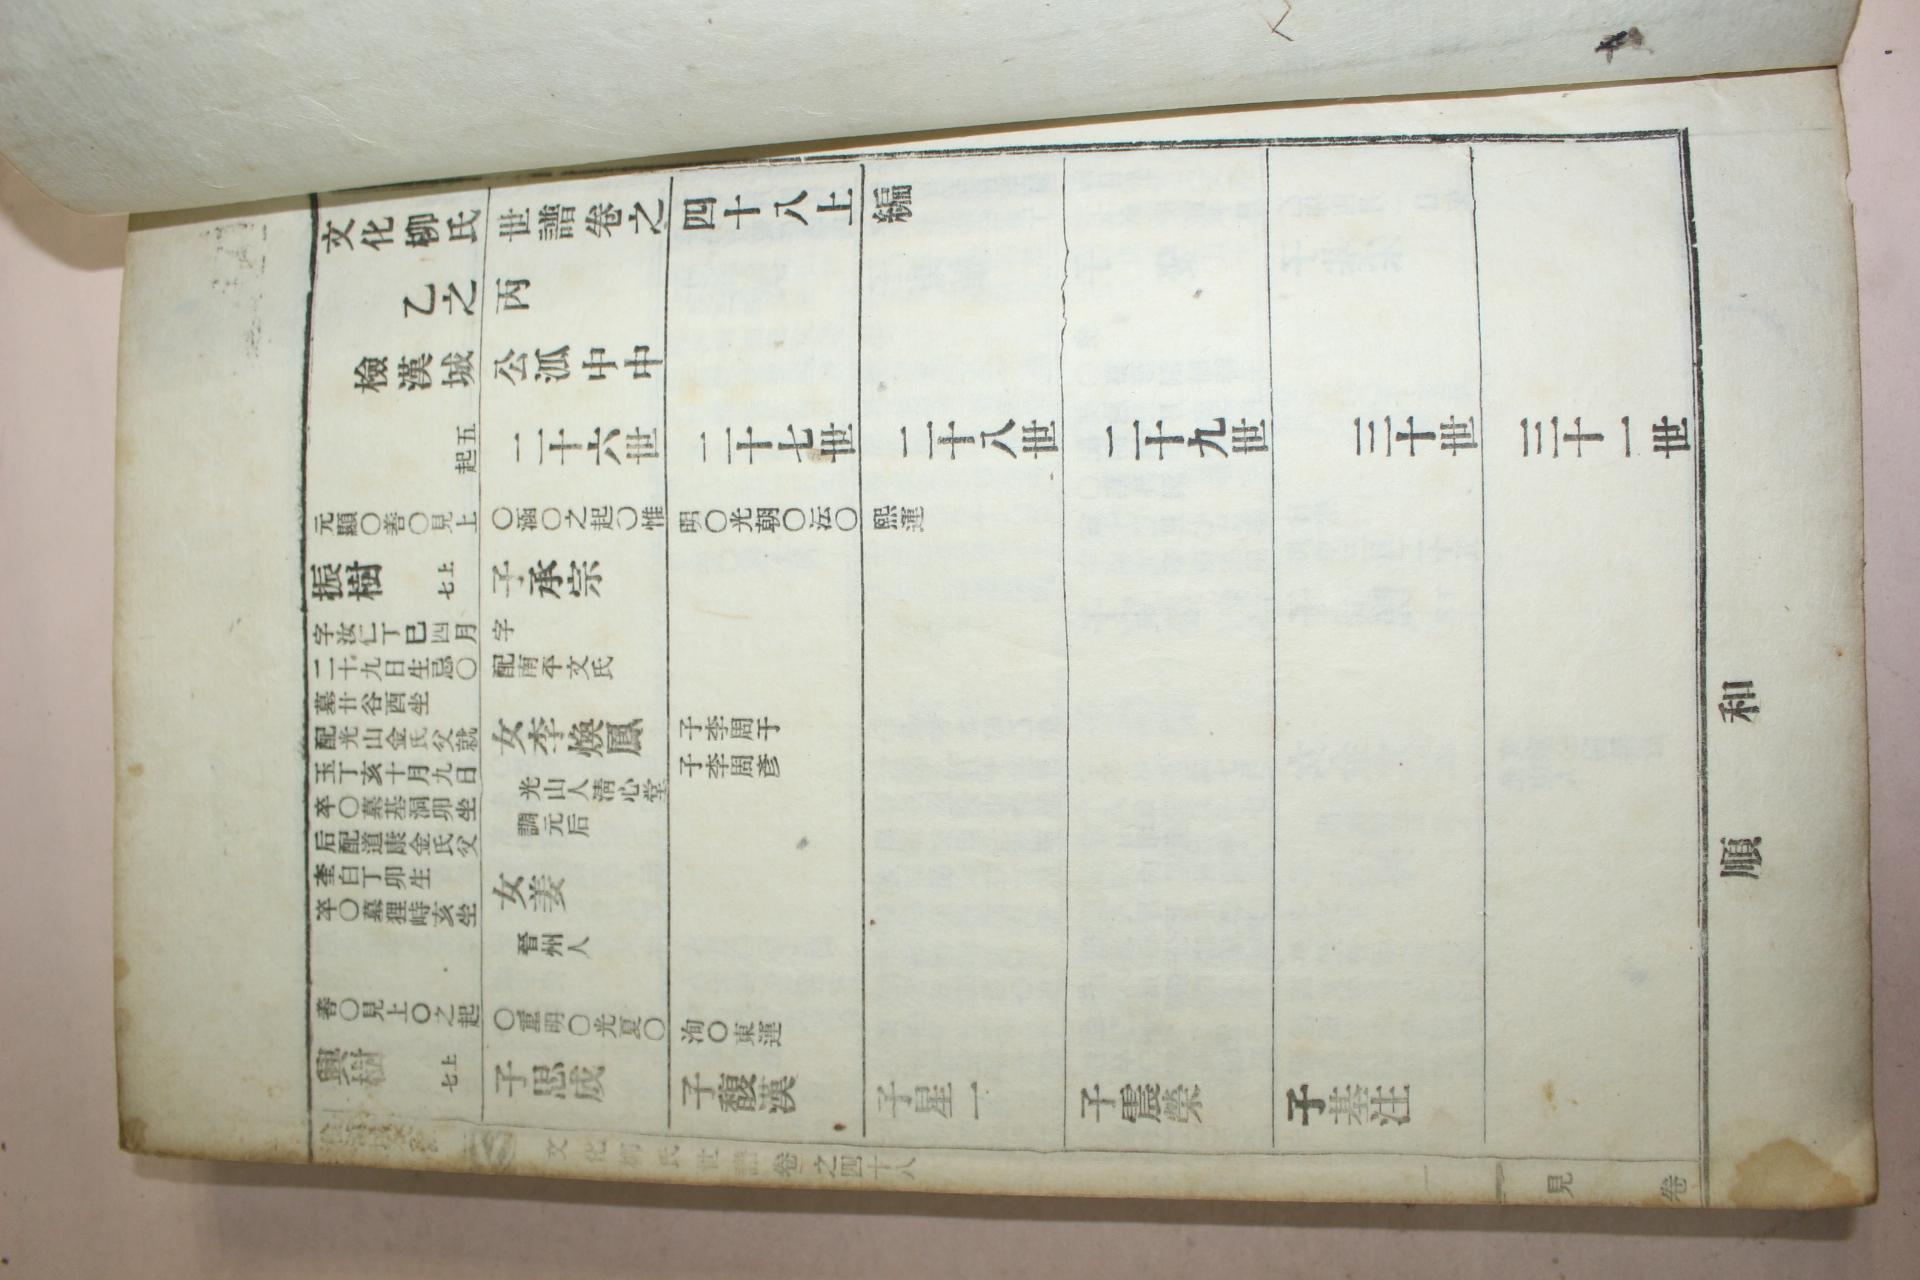 文化柳氏世譜卷之四十八上編
乙之丙
檢漢城公泒中中
五起
二十六世
二十七世
二十八世
二十九世
三十世
三十一世
元顯〇善〇見上
〇涵〇之起〇惟
明〇光朝〇沄〇
熙運
振樹
上七
字汝仁丁巳四月
二十九日生忌〇
墓廿谷酉坐
配光山金氏父就
玉丁亥十月九日
卒〇墓基洞卯坐
后配道康金氏父
奎白丁卯生
卒〇墓狸峙亥坐
子承宗
字
配南平文氏
女李煥鳳
光山人淸心堂
調元后
子李周于
子李周彥
女姜
晉州人
善〇見上〇之起
〇重明〇光夏〇
洵〇東運
興樹
上七
子思成
子馥漢
子星一
子震榮
子基注
文化柳氏世譜卷之四十八
一
見
卷
和順